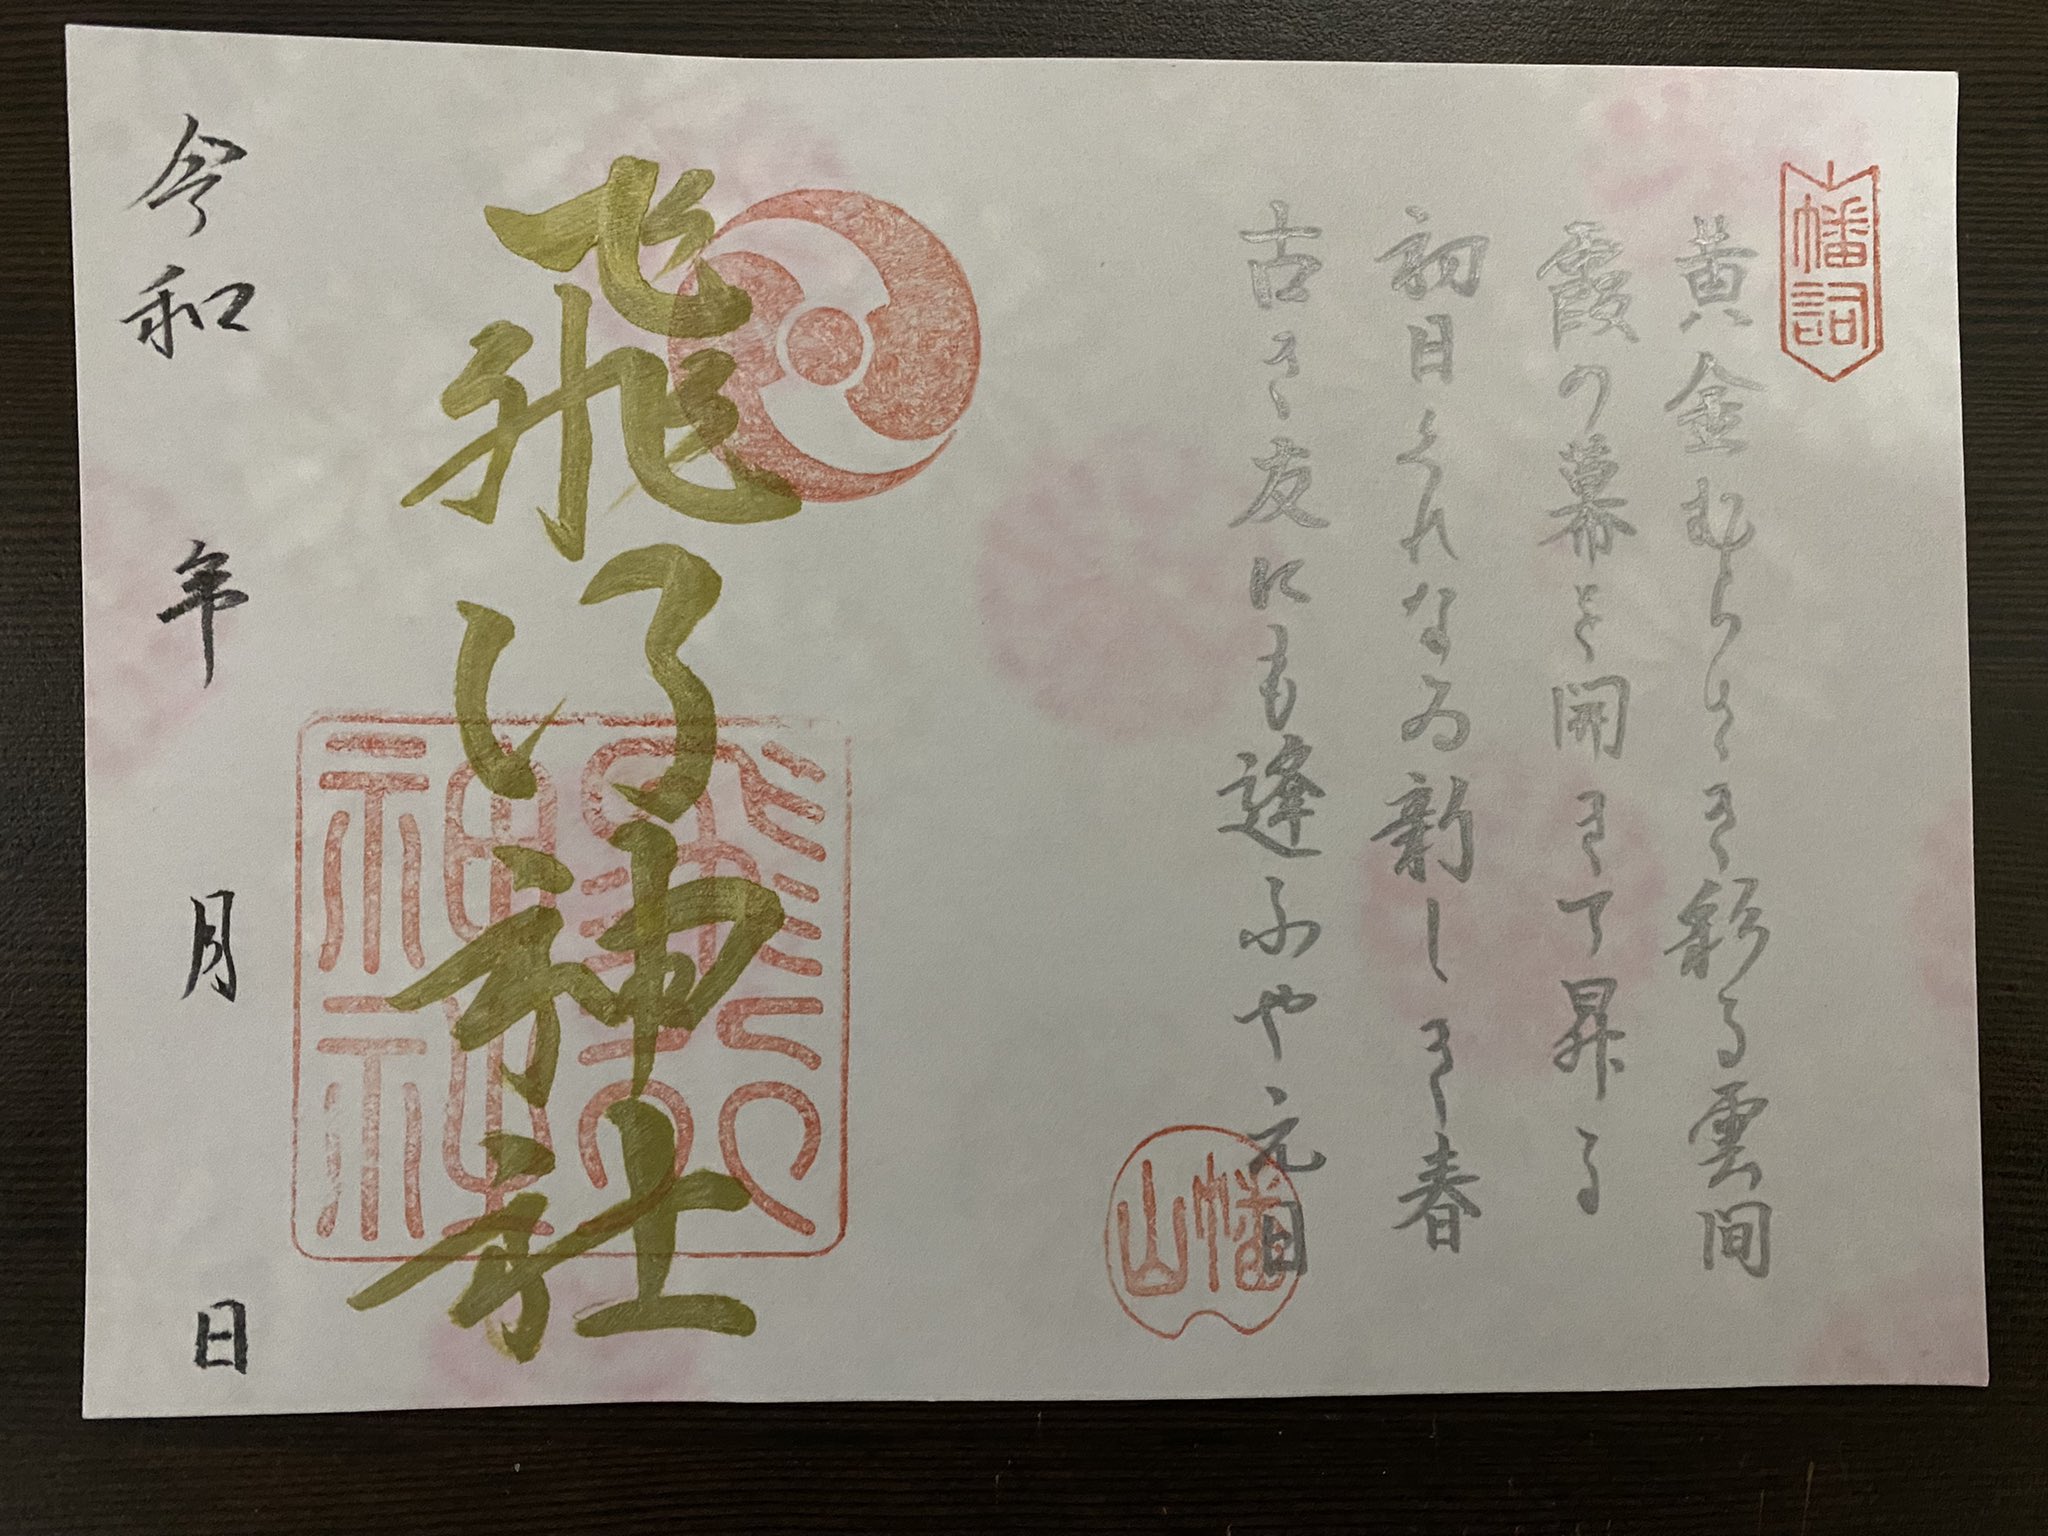 幡詞
黄金むらさき彩る雲間
霞の幕を開きて昇る
初日くれなゐ新しき春
古き友にも逢ふや元日
幡山
飛行神社
令和 年 月 日